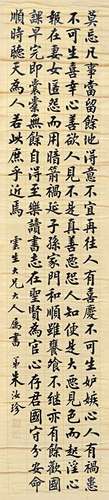 莫忘凡事當留餘地得意不宜再往人有喜慶不可生妒嫉心人有禍患
不可生喜幸心善欲人見不是真善惡恐人知便是大惡見色而起淫心
報在妻女匿怨而用暗箭禍延子孫家門和順雖饔飧不繼亦有餘歡國
課早完即囊橐無餘自得至樂讀書志在聖賢為官心存君國守分安命
順時聽天為人若此庶乎近焉
雲生大兄大人屬書 弟朱汝珍